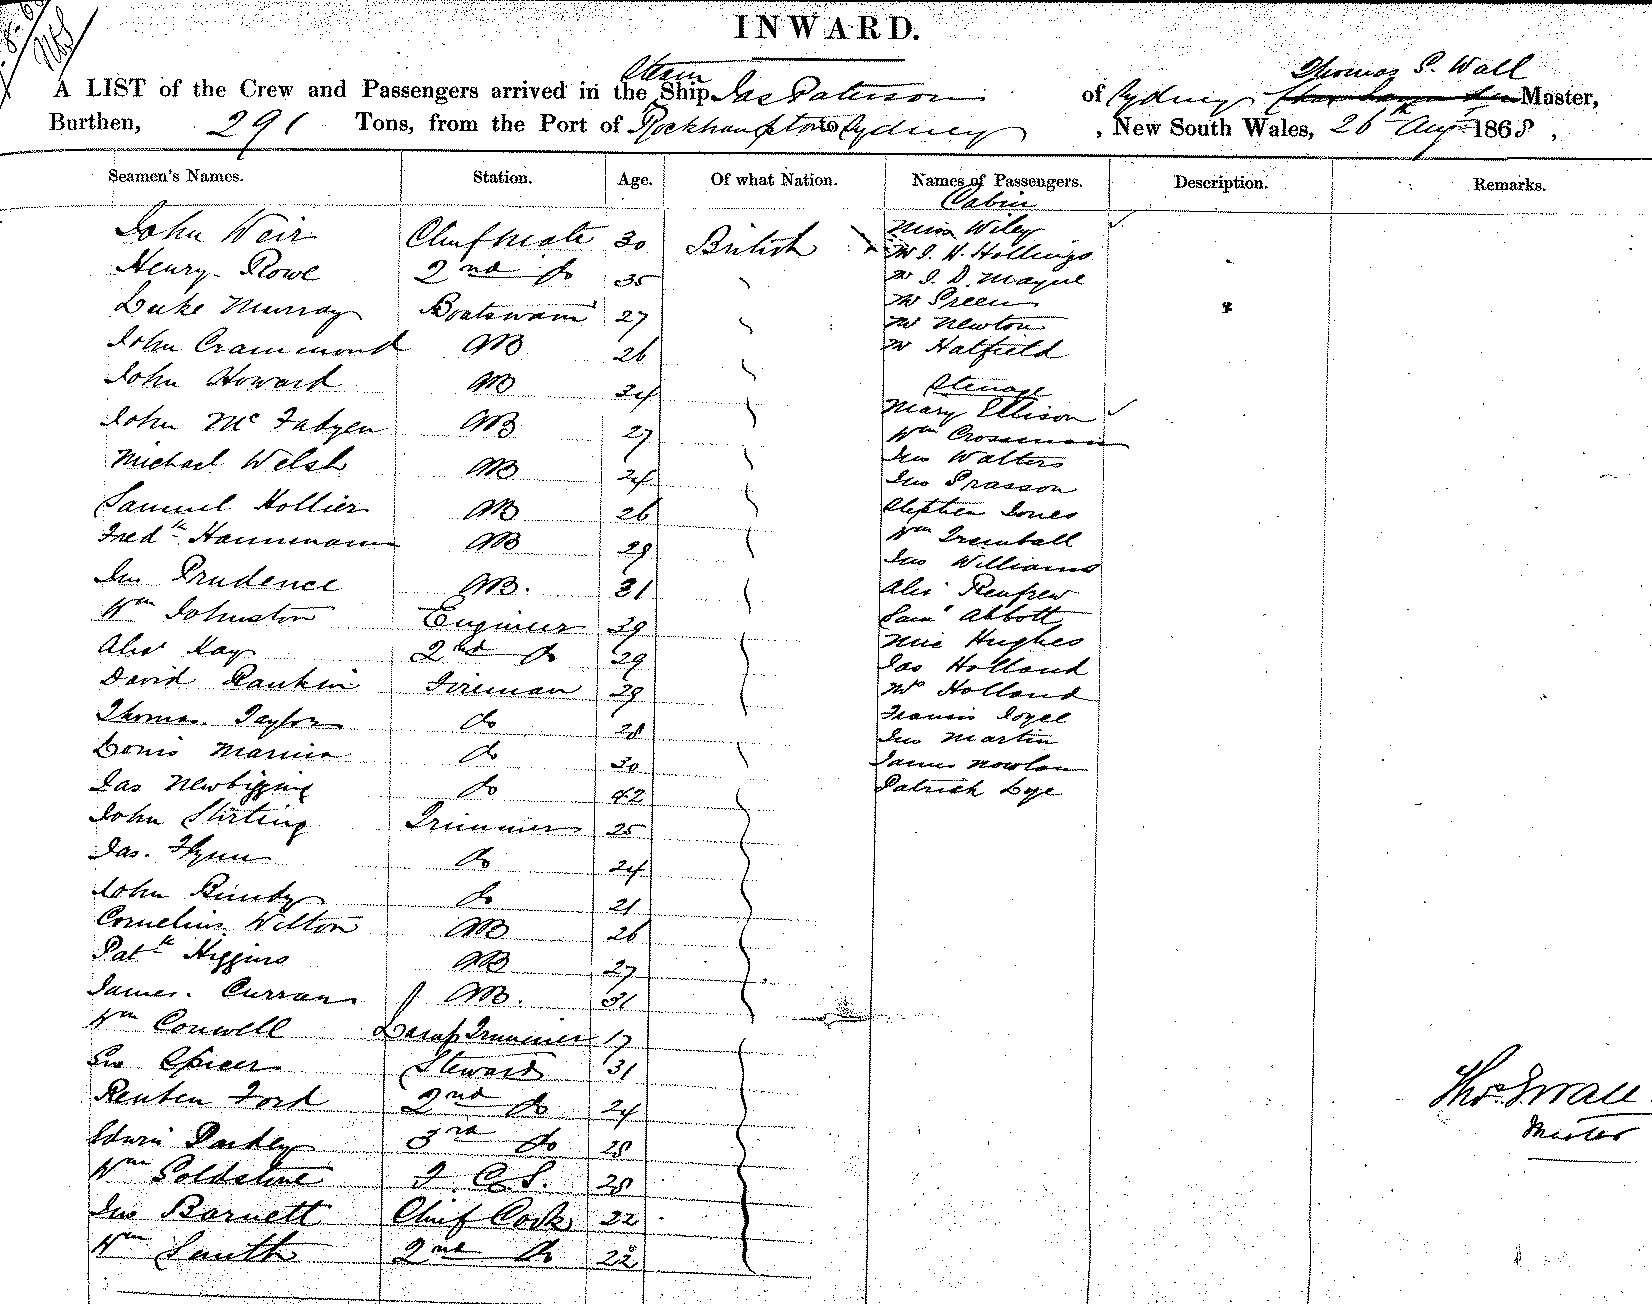 INWARD.
Steam Thomas S. Wall
A LIST of the Crew and Passengers arrived in the Ship Jas Paterson of Sydney Master,
Burthen, 291 Tons, from the Port of Rockhampton to Sydney , New South Wales, 26th Aug 1868 ,
Seamen's Names. Station. Age. Of what Nation. Names of Passengers. Description. Remarks.
Cabin
John Weir Chief Mate 30 British Miss Wiley
Mr J. H. Hollings
Henry Rowe 2nd do 35 Mr J. D. Mayne
Luke Murray Boatswain 27 Mr Green
Mr Newton
John Crammond AB 26 Mr Hatfield
John Howard AB 34 Steerage
Mary Ellison
John McFadyen AB 27 Wm Crossman
Michael Welsh AB 24 Jno Walters
Jno Prasson
Samuel Hollier AB 26 Stephen Jones
Fredk Hannmann AB 29 Wm Tremball
Jno Williams
Jno Prudence AB. 31 Alex Renfrew
Wm Johnston Engineer 39 Saml Abbott
Alex Kay 2nd do 29 Mrs Hughes
Jas Holland
David Rankin Fireman 29 Mr Holland
Thomas Taylor do 28 Francis Joyce
Jno Martin
Louis do 30 James Nowlan
Jas Newbigging do 42 Patrick Loye
John Stirling Trimmer 25
Jas. Flynn do 24
John Bimby do 21
Cornelius Wilton AB 26
Patk Higgins AB 27
James Curran AB. 31
Wm Conwell Lamp Trimmer 17
Geo Spicer Steward 31
Reuben Ford 2nd do 24
Thos S Wall
Edwin 3rd do 28
Master
Wm Goldstone F. C. S. 28
Jno Barnett Chief Cook 22
Wm Smith 2nd do 22